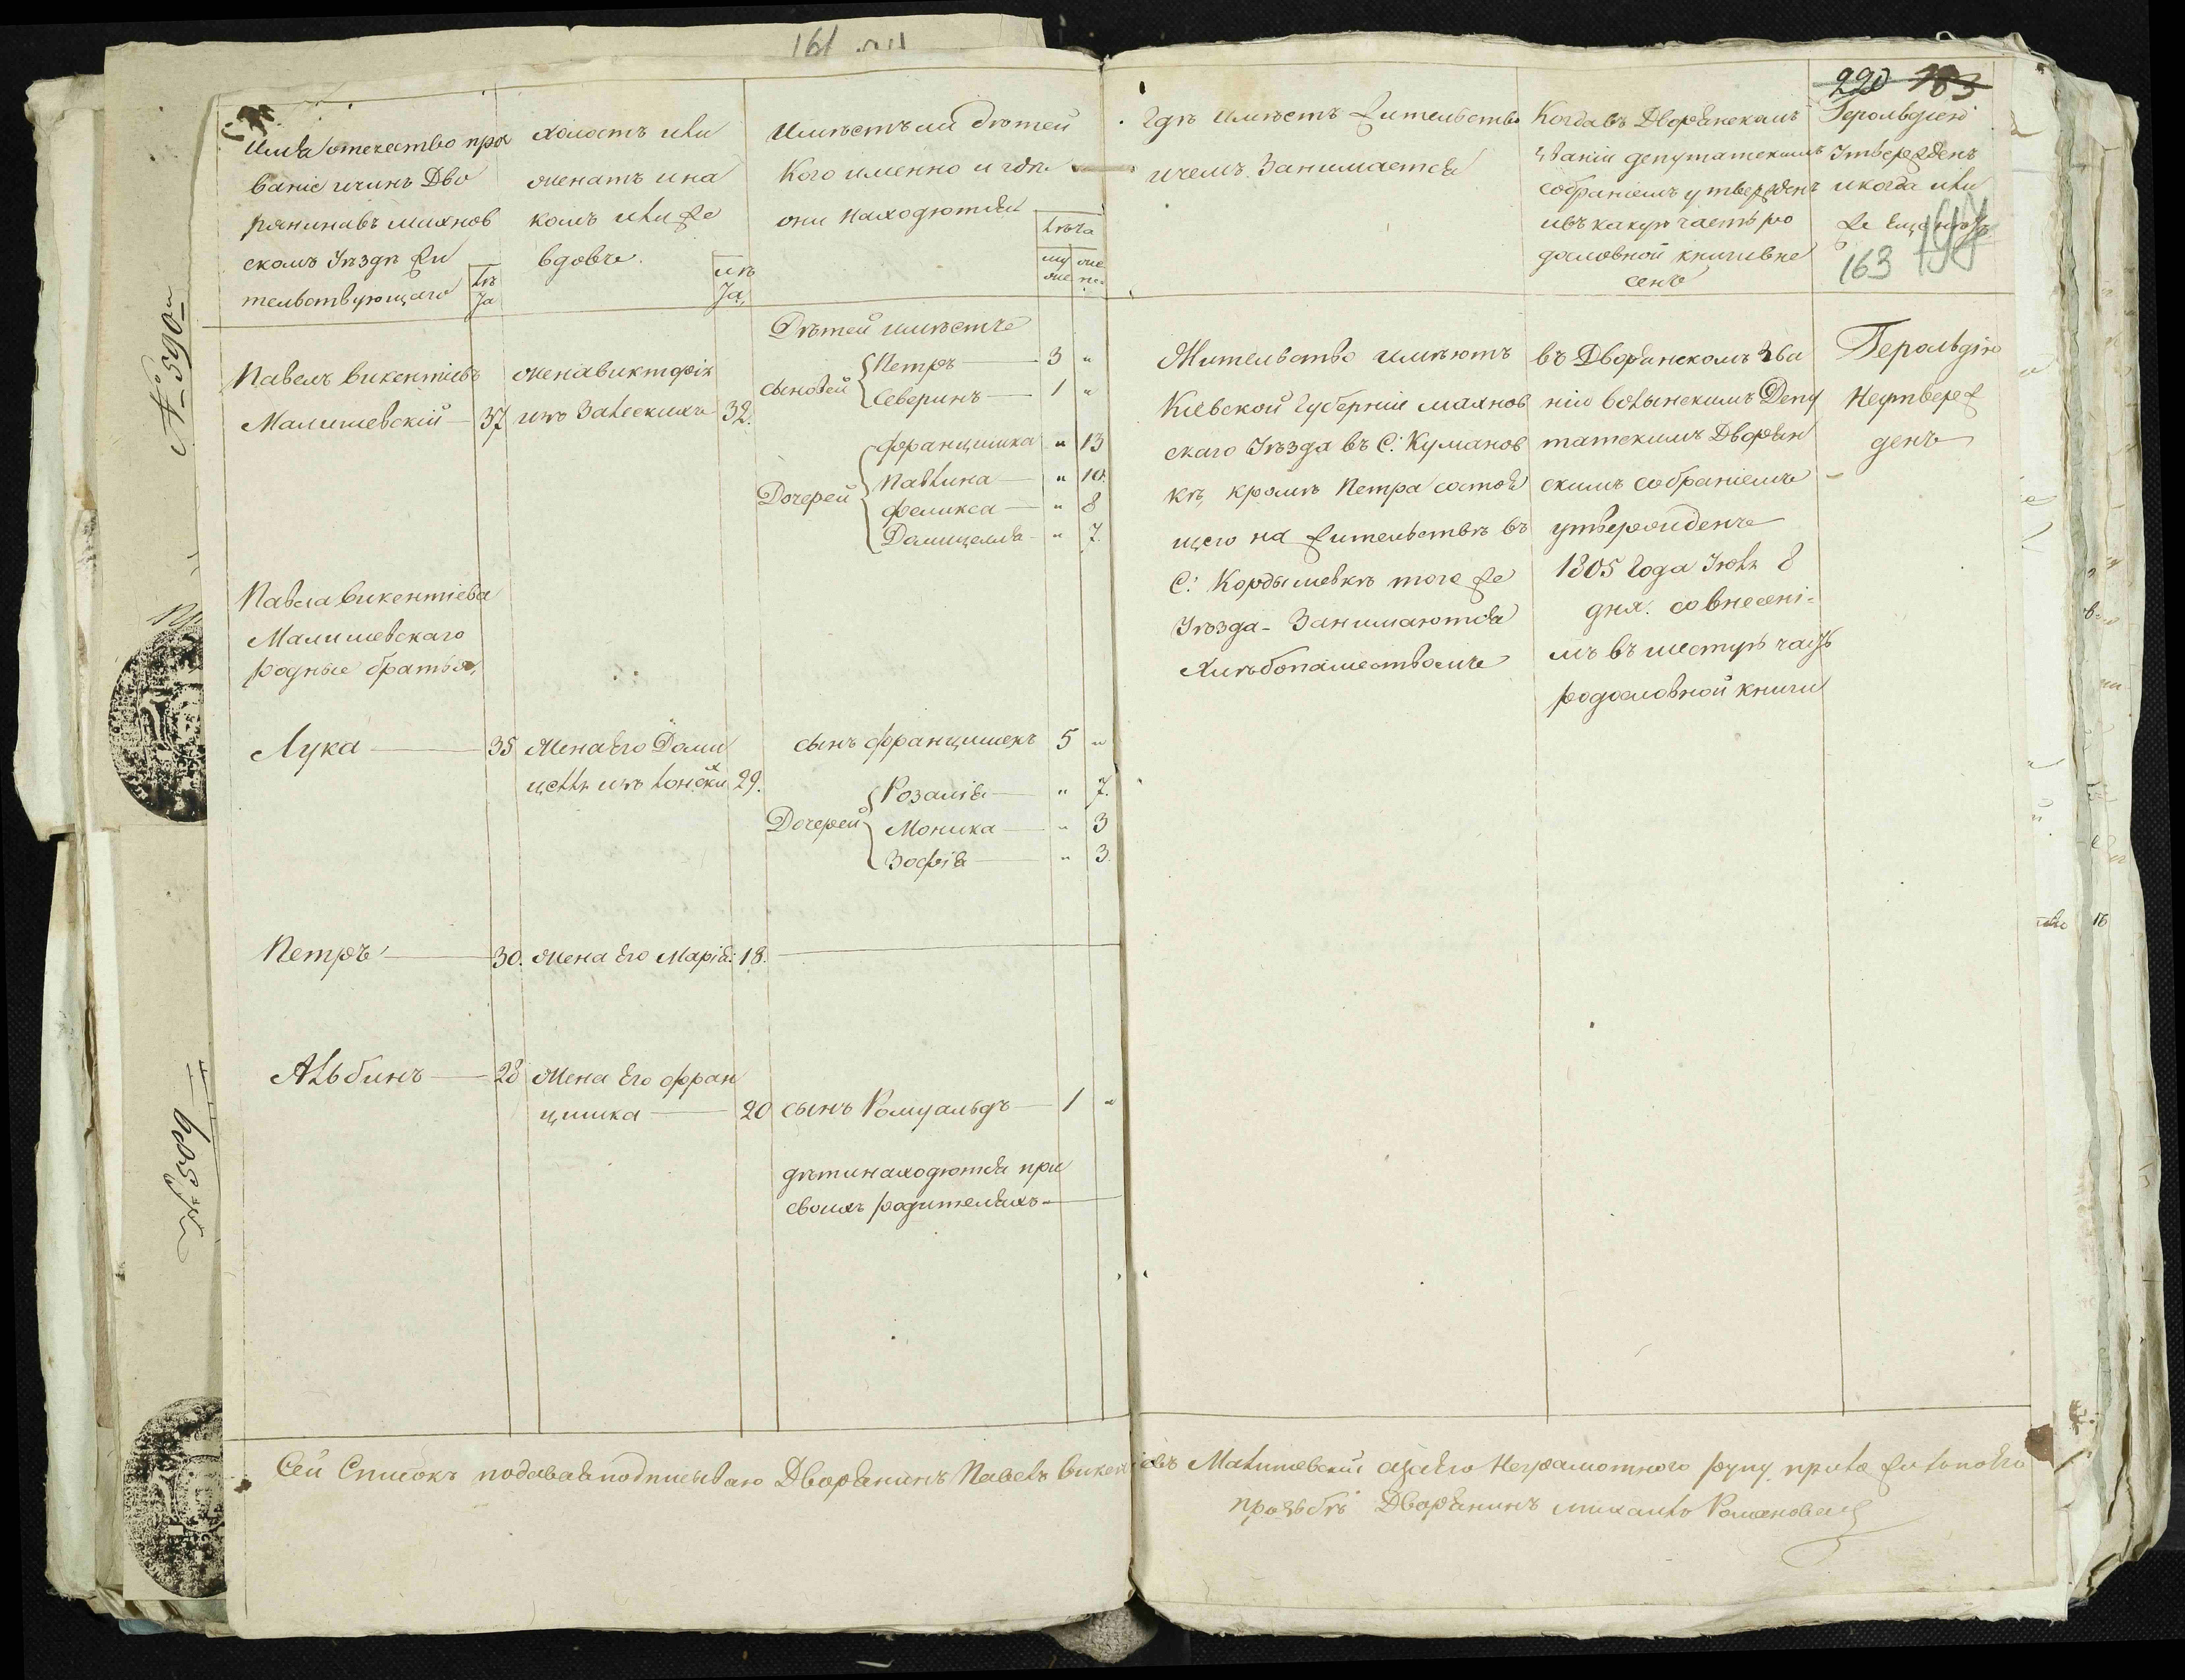 161
№ 590
220 183
163 197
Имя отечество про
званіе и чинъ Дво
рянина въ махнов
скомъ Уѣздѣ жи
тельствующаго
лѣ
та
холостъ или
женатъ и на
комъ или же
вдовъ.
лѣ
та,
Имѣетъ ли дѣтей
кого именно и гдѣ
они находятся
лѣта
му
же
же
нс
Гдѣ имѣетъ жительство
и чемъ занимается
Когда въ Дворянскомъ
званіи депутатскимъ
собраніемъ утвержденъ
и въ какую часть ро
дословной книги вне
сенъ
Герольдіею
Утвержденъ
и когда или
же еще нѣтъ
Павелъ викентіевъ
Малишевскій — 37
жена викторія
изъ Залескихъ 32.
Дѣтей имѣетъ
сыновей
Петръ — 3 "
Северинъ — 1 "
Дочерей
францишка " 13
Павлина — " 10.
феликса — " 8
Домицелля - " 7.
Жительство имѣютъ
Кіевской губерніи махнов
скаго Уѣзда въ С: Куманов
кѣ, кромѣ Петра состоя
щего на жительствѣ въ
С: Кордышевкѣ того же
Уѣзда - Занимаются
Хлѣбопашествомъ
въ Дворянскомъ зва
ніи волынскимъ Депу
татскимъ Дворян
скимъ собраніемъ
утвержденъ
1805 года Іюля 8
дня. со внесені-
мъ въ шестую часть
родословной книги
Герольдіею
Неутверж
денъ
Павла викентіева
Малишевскаго
родные братья,
Лука — 35
Жена Его Доми
целля изъ лонскихъ 29.
сынъ францишекъ 5 "
Дочерей
Розалія — " 7.
Моника — " 3
Зофія — " 3.
Петръ — 30. жена Его Марія: 18.
Альбинъ — 28 Жена Его фран
цишка — 20 сынъ Ромуальдъ — 1 "
дѣти находятся при
своихъ родителяхъ —
Сей Списокъ подавая подписываю Дворянинъ Павелъ викентіевъ Малишевскій а за Его Неграмотного руку приложилъ по Его
прозьбѣ Дворянинъ михаилъ Романовскій